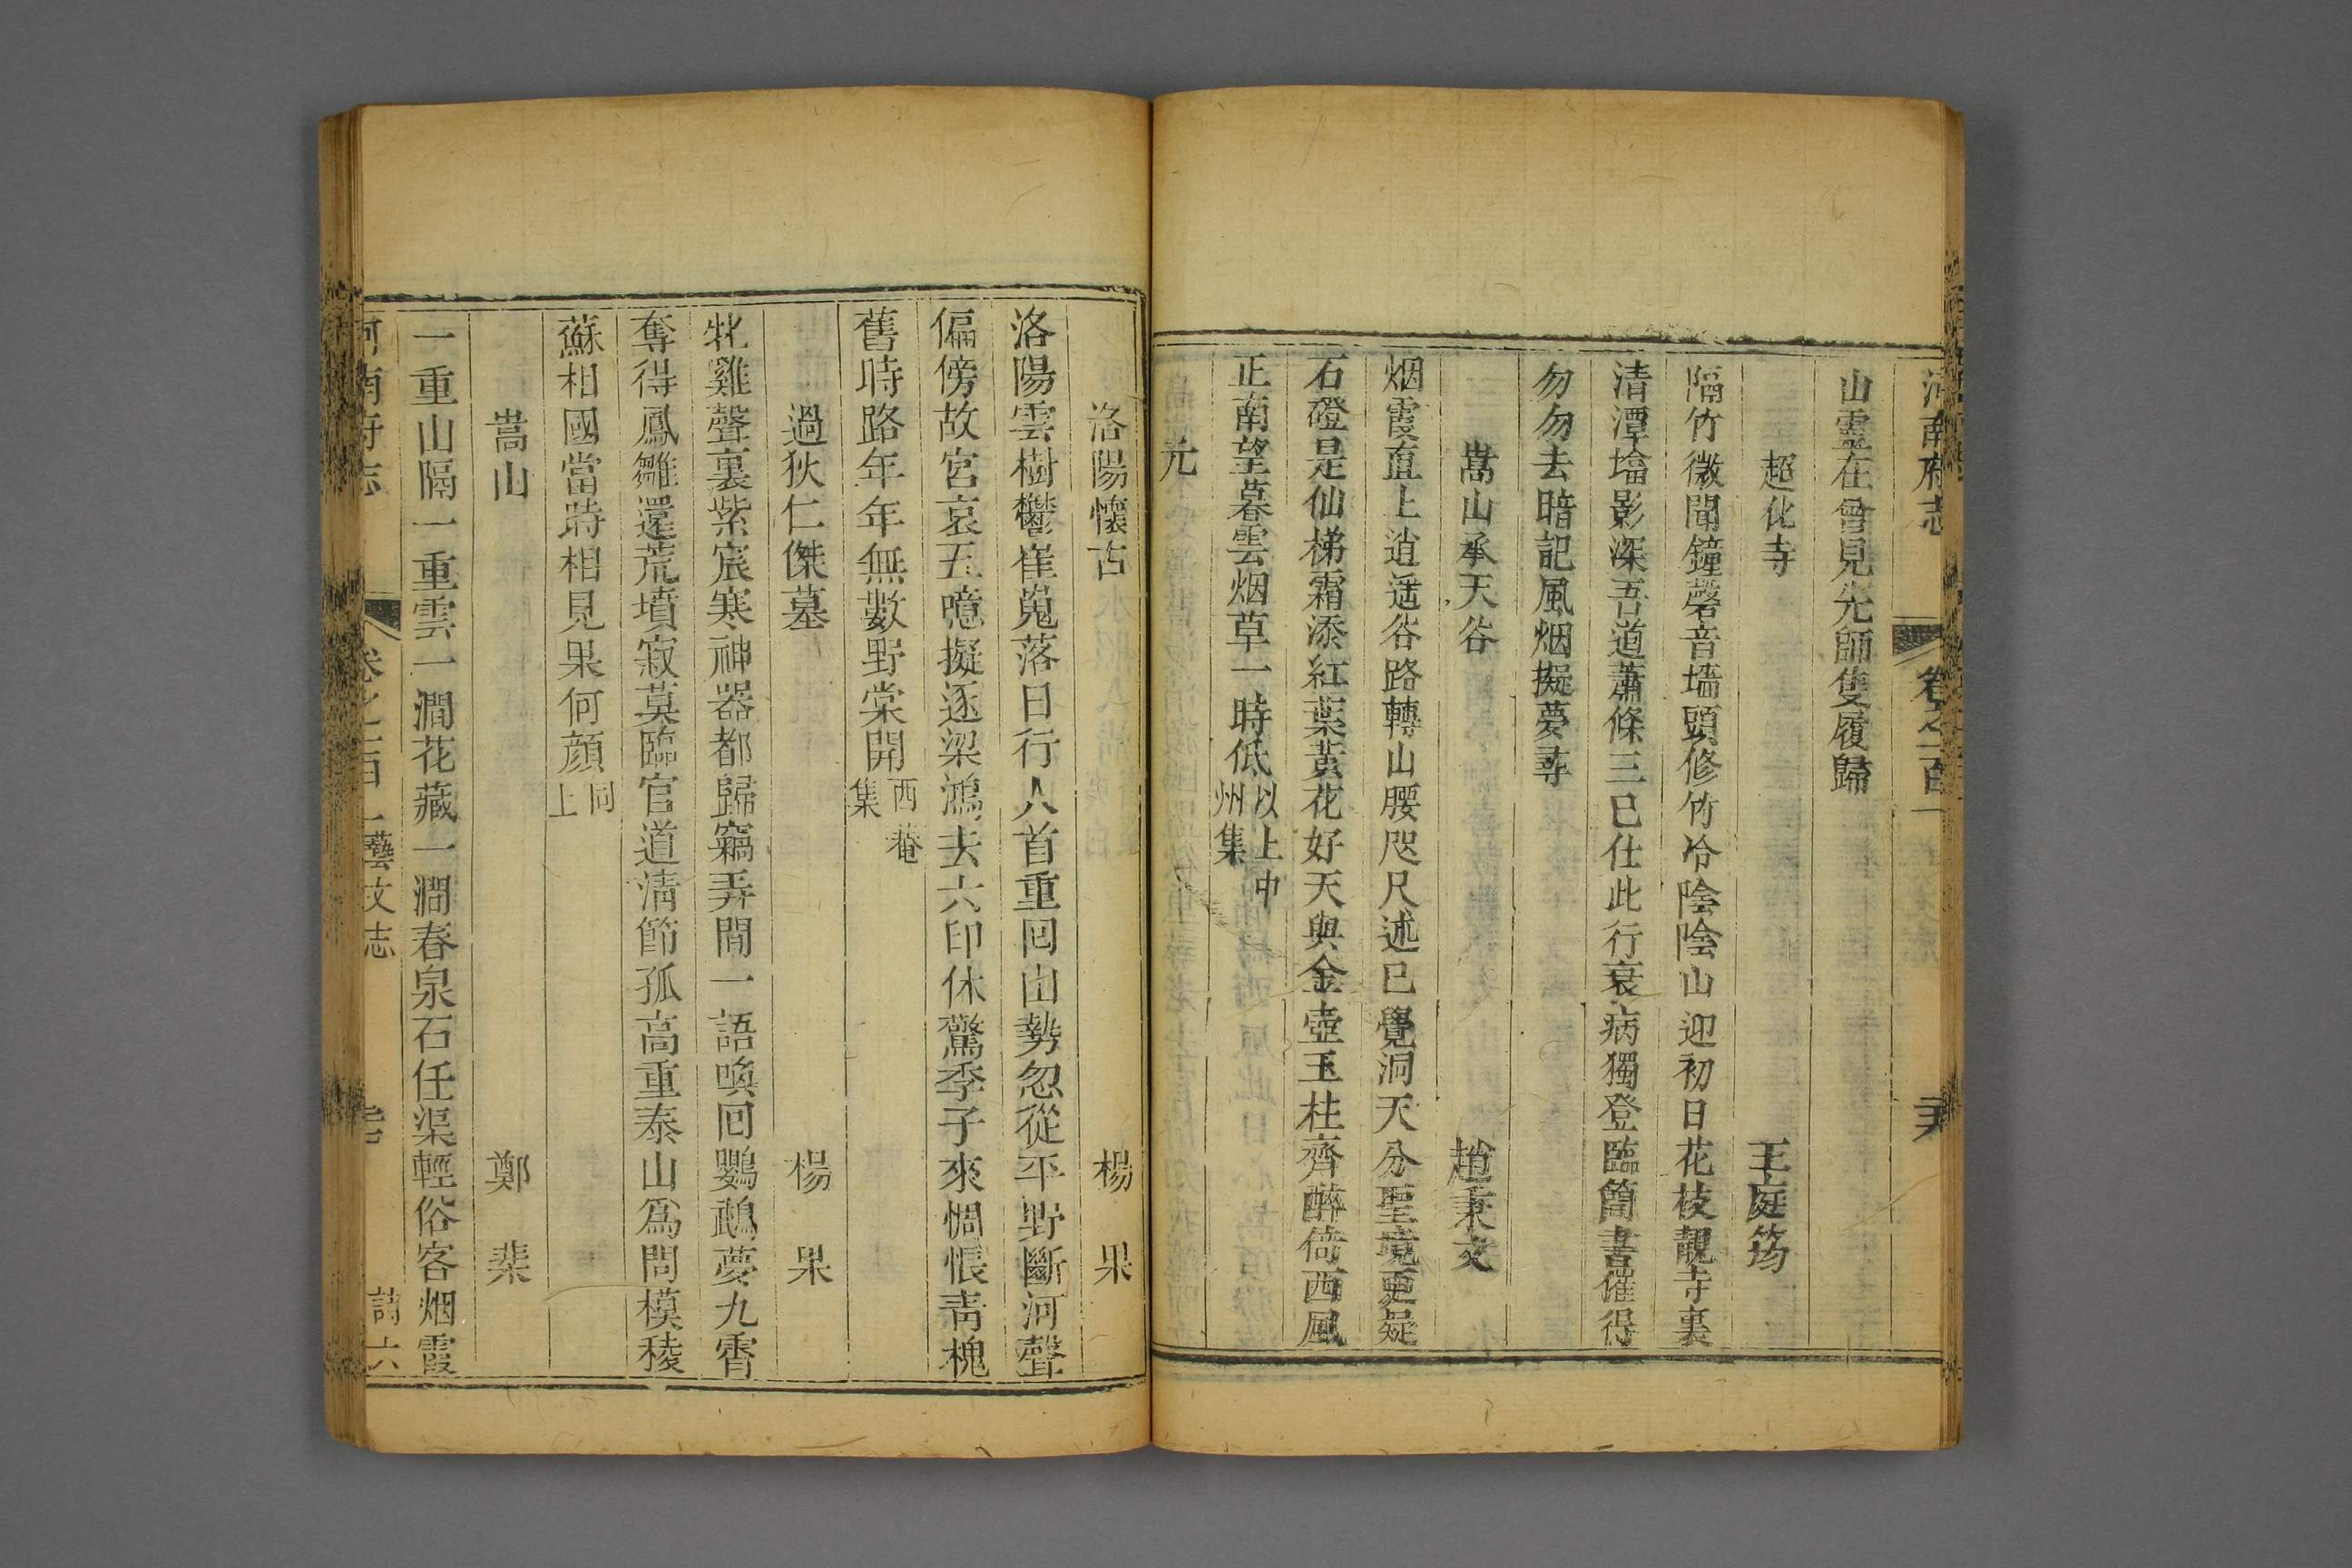 河南府志 卷之一百一
山靈在曾見先師隻履歸
超化寺 王庭筠
隔竹微聞鐘磬音墻頭修竹冷陰陰山迎初日花枝靚寺裏
清潭墖影深吾道蕭條三已仕此行衰病獨登臨簡書催得
勿勿去暗記風烟擬夢尋
嵩山承天谷 趙秉文
烟霞直上逍遥谷路轉山腰咫尺迷已覺洞天分聖境更疑
石磴是仙梯霜添紅葉黃花好天與金壺玉柱齊醉倚西風
正南望暮雲烟草一時低以上中州集
元
洛陽懷古 楊果
洛陽雲樹鬱崔嵬落日行人首重回山勢忽從平野斷河聲
偏傍故宮哀五噫擬逐梁鴻去六印休驚季子來惆悵青槐
舊時路年年無數野棠開西菴集
過狄仁傑墓 楊果
牝雞聲裏紫宸寒神器都歸竊弄間一語喚回鸚鵡夢九霄
奪得鳳雛還荒墳寂莫臨官道淸節孤高重泰山爲問模稜
蘇相國當時相見果何顔同上
嵩山 鄭棐
一重山隔一重雲一澗花藏一澗春泉石任渠輕俗客烟霞
河南府志 卷之一百一 藝文志 詩六